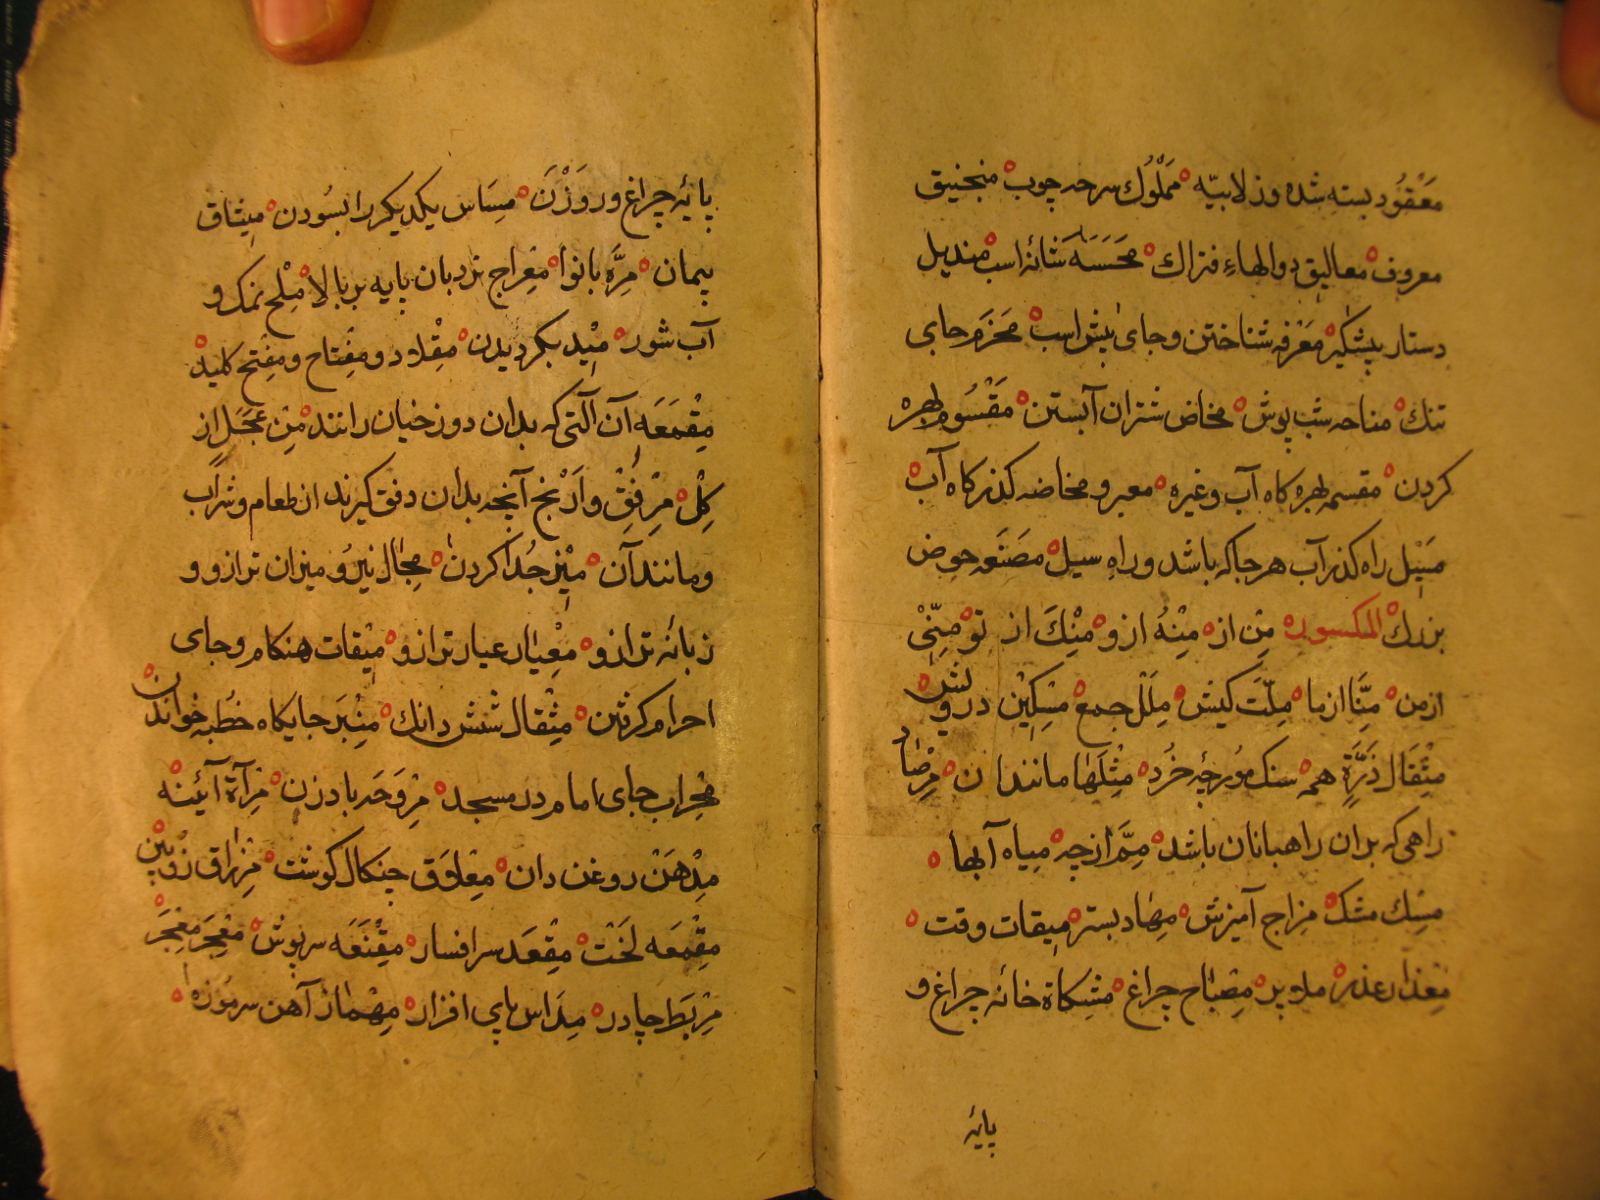 مَعْقُود بسته شده وزلابیّه مَمْلُوك سرخه چوب منجنیق
معروف معالیق دوالهاءِ فتراك مَحَسَّه شانۀ اسب مندیل
دستار پیشکیر مَعْرفه شناختن وجای پیش اسب مَحزَم جای
تنك مناحه شب پوش مخاض شتران آبستن مَقْسُوم بهره
کردن مقسم بهره کاه آب وغیره معبر و مخاضه کذرکاه آب
مَسِیْل راه کذر آب هرجاکه باشد وراهِ سیل مصَنَعه حوض
بزرك المکسوره مِن از مِنْهُ ازو مِنْكَ از تو مِنّیْ
ازمن مِنَّا ازما مِلّت کیش مِلَلْ جمع مِسْکِیْن درویش
مِثْقَالَ ذَرَّةٍ همسنك مورچۀ خُرد مِثْلَهَا مانند ان مِرْصَاد
راهی که بدان راهبانان باشد مِمَّ ازچه مِیاه آبها
مِسْك مشك مِزاج آمیزش مِهَاد بستر مِیقات وقت
مِعْذار عذر ملو پر مِصْبَاح چراغ مِشکاة خانۀ چراغ و
پایۀ
پایۀ چراغ وروَزْنَ مِسَاس یکدیکر را بسُودن مِیثاق
پیمان مِرَّه بانوا مِعراج نردبان پایه بربالا مِلْح نمك و
آب شور مَیْد بکردیدن مِقْلاد ومِفتاح ومِفتح کلید
مِقْمَعَه آن آلتی که بدان دوزخیان رانند مِن عجَلٍ از
کِلْ مِرْفَقْ وآرَنْج آنچه بدان دفق کیرند از طعام وشراب
ومانند آن مَیْز جُدا کردن مِحال نیرو میزان ترازو و
زبانۀ ترازو مِعْیار عیار ترازو مِیْقات هنکام وجای
احرام کرفتن مِثْقال شش دانك مِنْبَر جایکاه خطبه خواندن
مِحراب جای امام در مسجد مِرْوَحَه بادزن مِرآة آئینه
مِدْهَنْ روغن دان مِعْلَوَق چنکال کوشت مِزراق زوبین
مِقْمَعه لَخْت مِقْعَد سرافسار مِقْنَعَه سرپوش مِعْجَر مِعْجَر
مِرْبَط چادر مِدَاس پای افزار مِهْماز آهن سرموزه